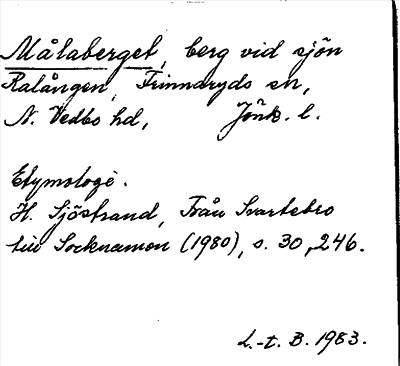 Målaberget, berg vid sjön
Ralången, Frinnaryds sn,
N. Vedbo hd, Jönk. l.
Etymologi.
H. Sjöstrand, Från Svartebro
till Socknamon (1980), s. 30, 246.
L.-t. B. 1983.